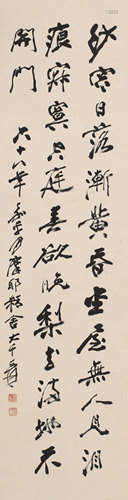 紗窗日落漸黃昏金屋無人見淚
痕寂寞空庭春欲晚梨花滿地不
開門 六十八年嘉平月摩耶精舍大千爰